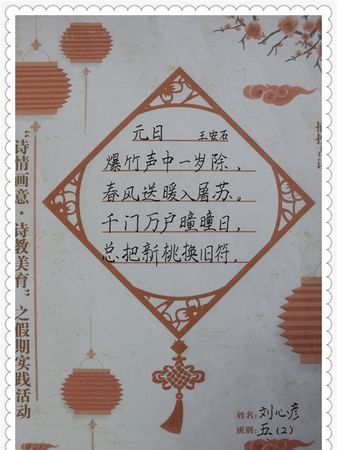 元日 王安石
爆竹声中一岁除，
春风送暖入屠苏。
千门万户曈曈日，
总把新桃换旧符。
“诗情画意·诗教美育”之假期实践活动
姓名:刘心彦
班别:五(2)